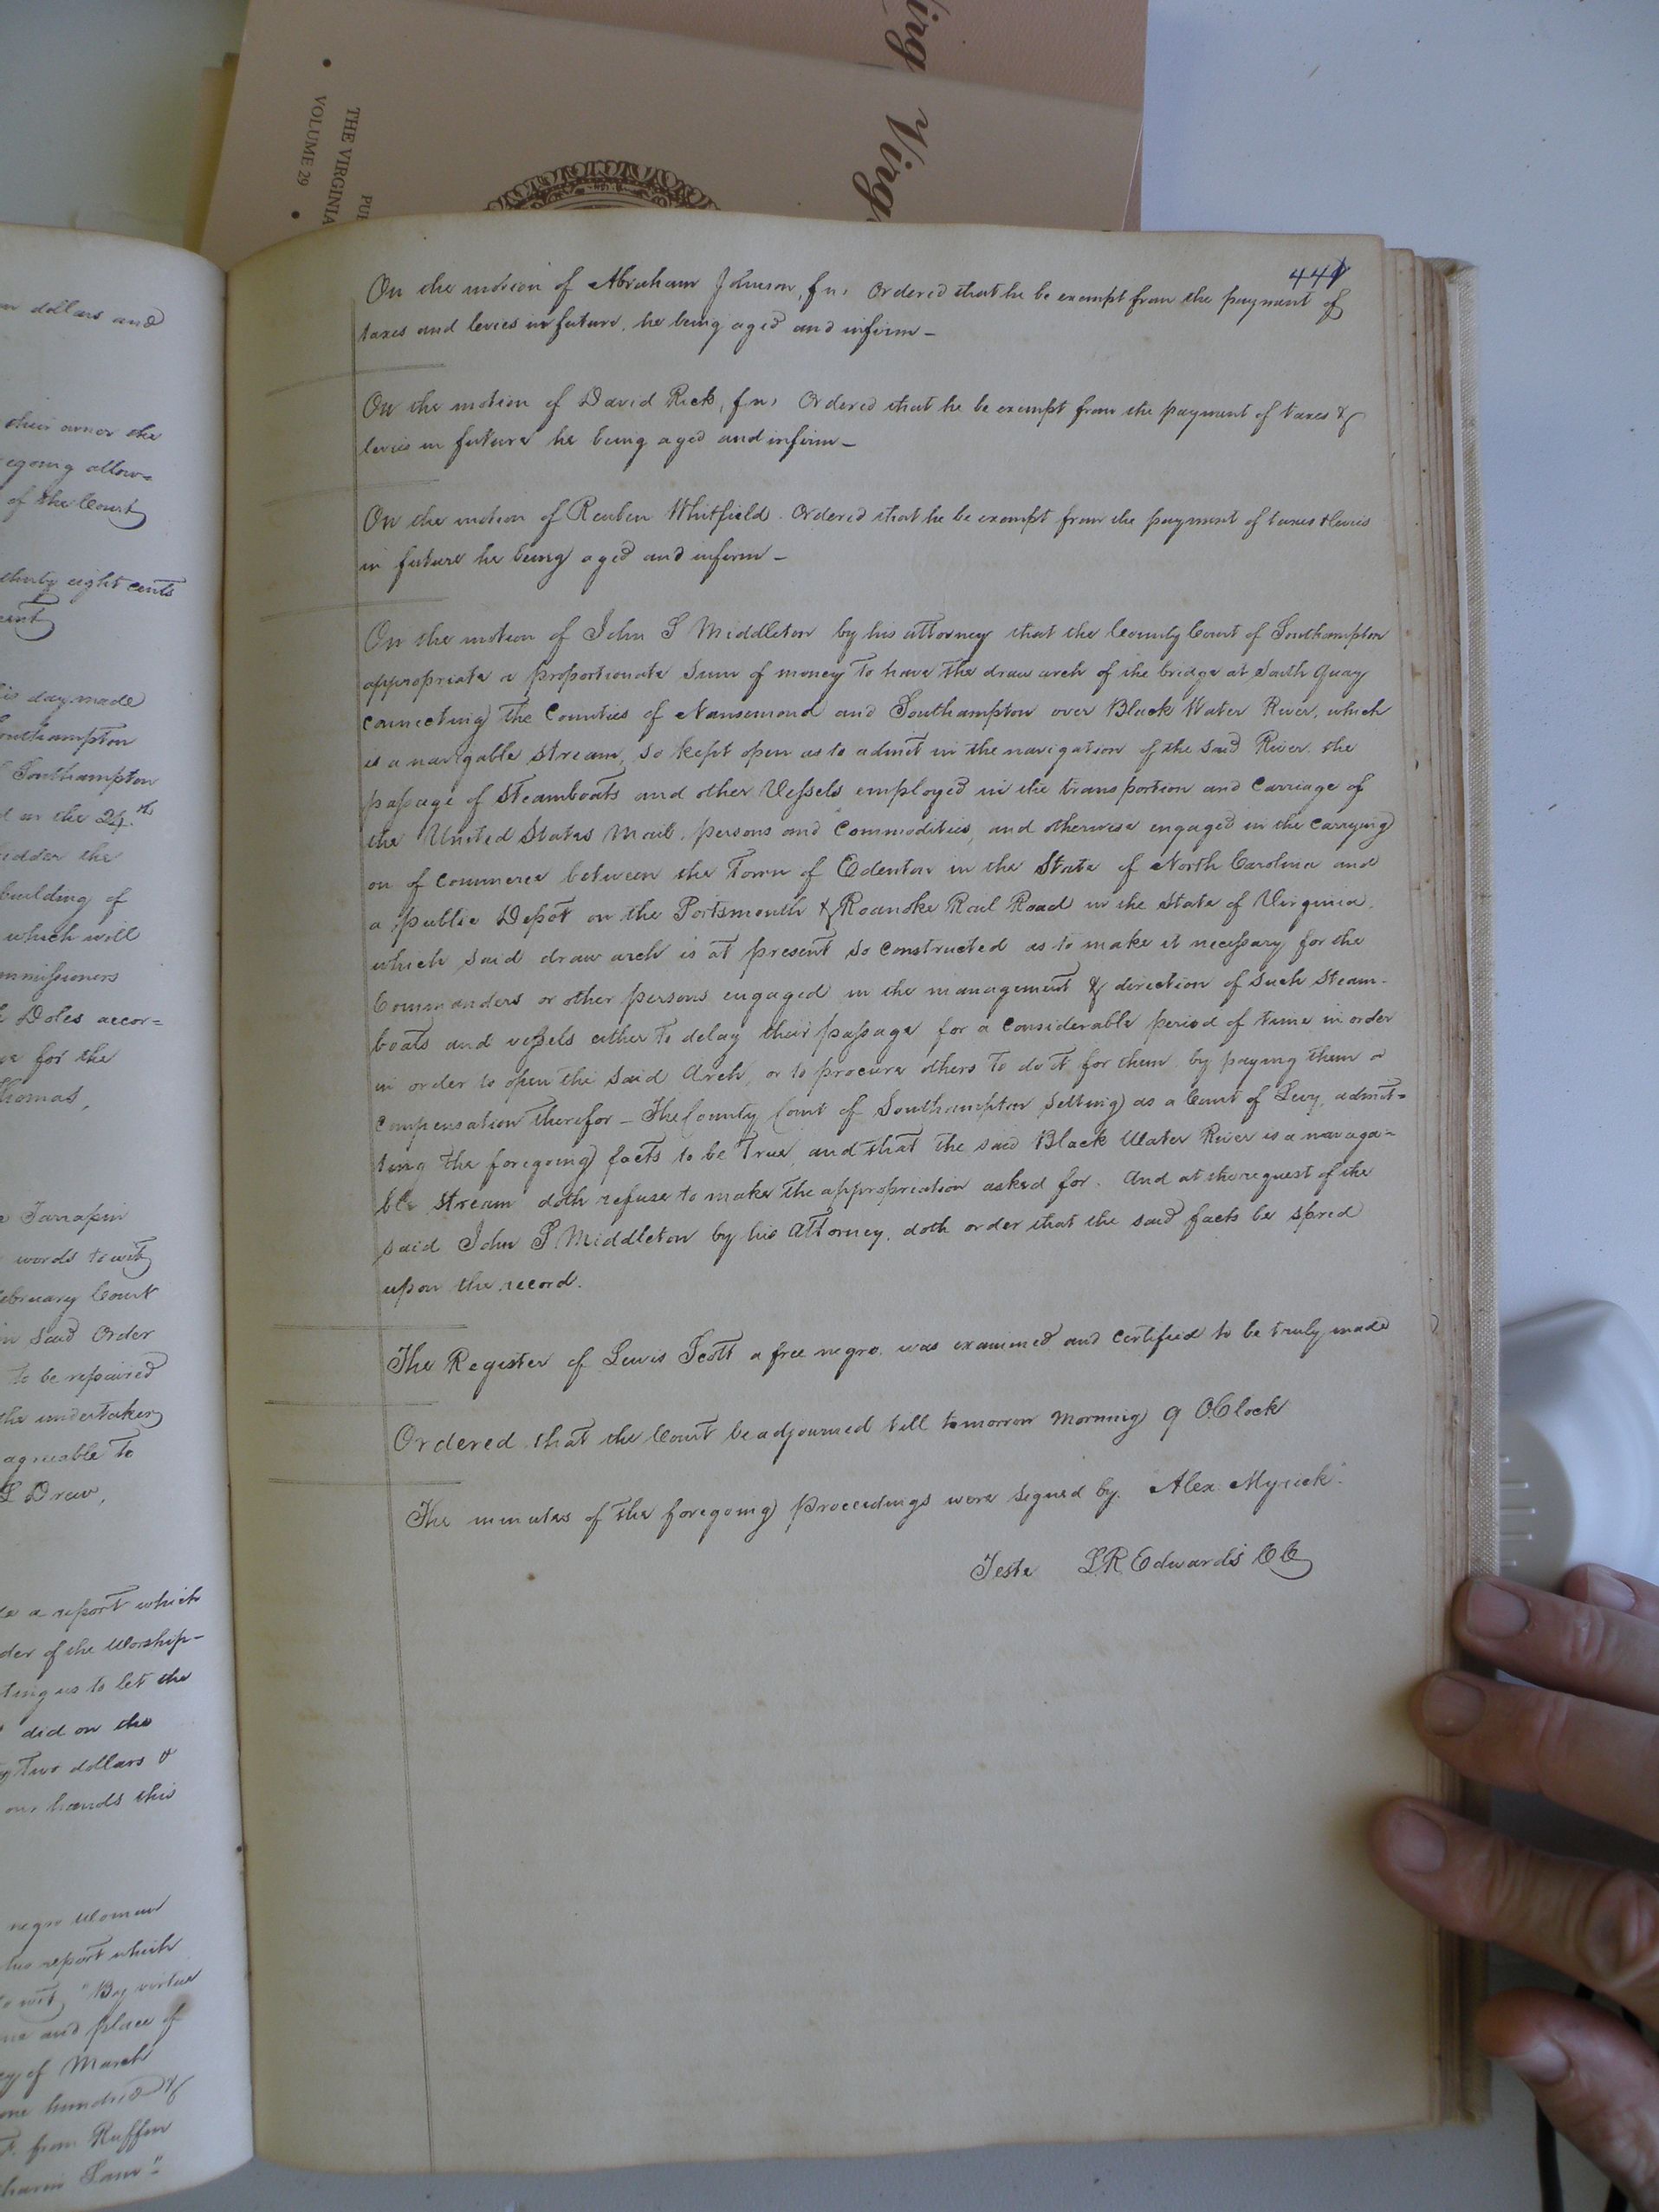 THE VIRGINIA
VOLUME 29
441
On the motion of Abraham Johnson, fn, Ordered that he be exempt from the payment of
taxes and levies in future, he being aged and infirm –
On the motion of David Rick, fn, Ordered that he be exempt from the payment of taxes &
levies in future he being aged and infirm –
On the motion of Reuben Whitfield. Ordered that he be exempt from the payment of taxes & levies
in future he being aged and infirm –
On the motion of John S Middleton by his attorney that the County Court of Southampton
appropriate a proportionate Sum of money to have the draw arch of the bridge at South Quay
connecting the Counties of Nansemond and Southampton over Black Water River, which
is a navigable stream, so kept open as to admit in the navigation of the said River the
passage of Steamboats and other Vessels employed in the transportion and carriage of
the United States Mail, persons and Commodities, and otherwise engaged in the carrying
on of commerce between the Town of Edenton in the State of North Carolina and
a public Depot on the Portsmouth & Roanoke Rail Road in the State of Virginia.
which said draw arch is at present so constructed as to make it necessary for the
Commanders or other persons engaged in the management & direction of such steam-
boats and vessels either to delay their passage for a considerable period of time in order
in order to open the said Arch, or to procure others to do it for them by paying them a
compensation therefor – The County Court of Southampton setting as a Court of Levy, admit=
ting the foregoing facts to be true, and that the said Black Water River is a navaga=
ble stream doth refuse to make the appropriation asked for. And at the request of the
said John S. Middleton by his Attorney, doth order that the said facts be spred
upon the record.
The Register of Lewis Scott a free negro was examined and certified to be truly made
Ordered that the Court be adjourned till tomorrow Morning 9 OClock
The minutes of the foregoing proceedings were signed by. Alex Myrick.
Teste L.R. Edwards CC
dollars and
their owner the
egoing allow=
of the Court
thirty eight cents
day made
Southampton
Southampton
on the 24th
bidder the
building of
which will
mmissioners
Doles accor=
for the
Thomas,
Tarrapin
words to wit
February Court
in said Order
to be repaired
the undertaker
agreeable to
Drew,
a report which
der of the Worship-
ting us to let the
did on the
Two dollars &
our hands this
negro Woman
his report which
to wit, "By virtue
and place of
of March
one hundred &
from Ruffin